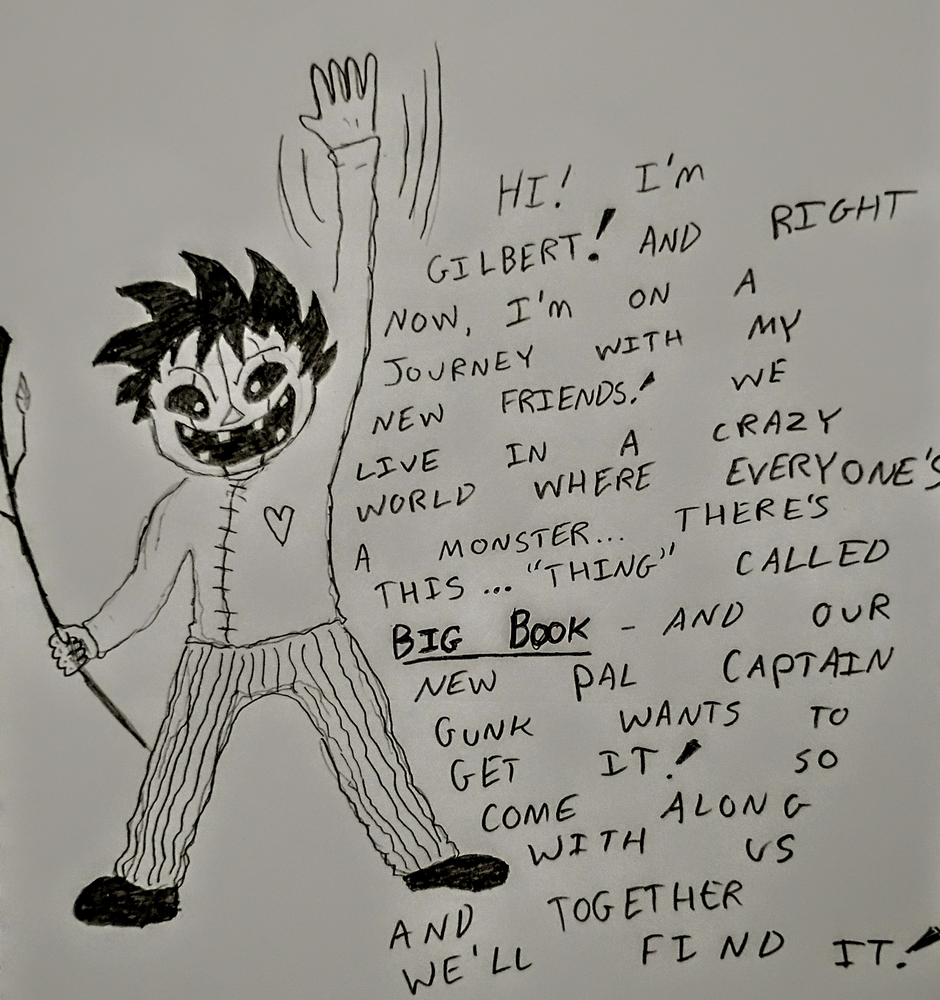 HI! I'm
GILBERT! AND RIGHT
NOW, I'm ON A
JOURNEY WITH MY
NEW FRIENDS! WE
LIVE IN A CRAZY
WORLD WHERE EVERYONE'S
A MONSTER... THERE'S
THIS... "THING" CALLED
BIG BOOK - AND OUR
NEW PAL CAPTAIN
GUNK WANTS TO
GET IT! SO
COME ALONG
WITH US
AND TOGETHER
WE'LL FIND IT!